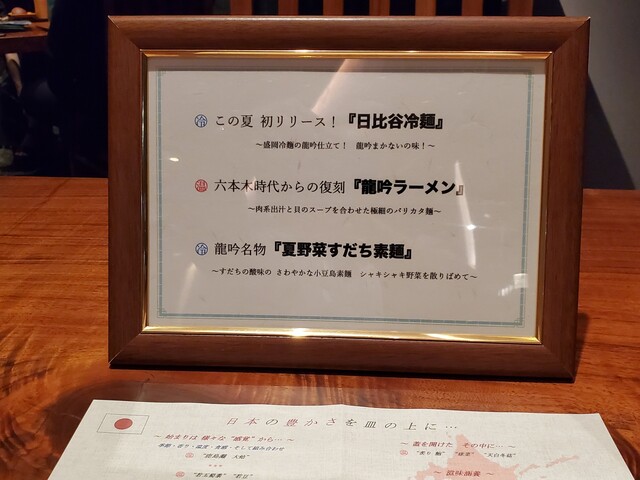 冷 この夏 初リリース！『日比谷冷麺』
～盛岡冷麺の龍吟仕立て！ 龍吟まかないの味！～
温 六本木時代からの復刻『龍吟ラーメン』
～肉系出汁と貝のスープを合わせた極細のバリカタ麺～
冷 龍吟名物『夏野菜すだち素麺』
～すだちの酸味の さわやかな小豆島素麺 シャキシャキ野菜を散りばめて～
日本の豊かさを皿の上に…
～ 始まりは 様々な “感覚” から… ～
季節・香り・温度・食感・そして組み合わせ
～ 蓋を開けた その中に… ～